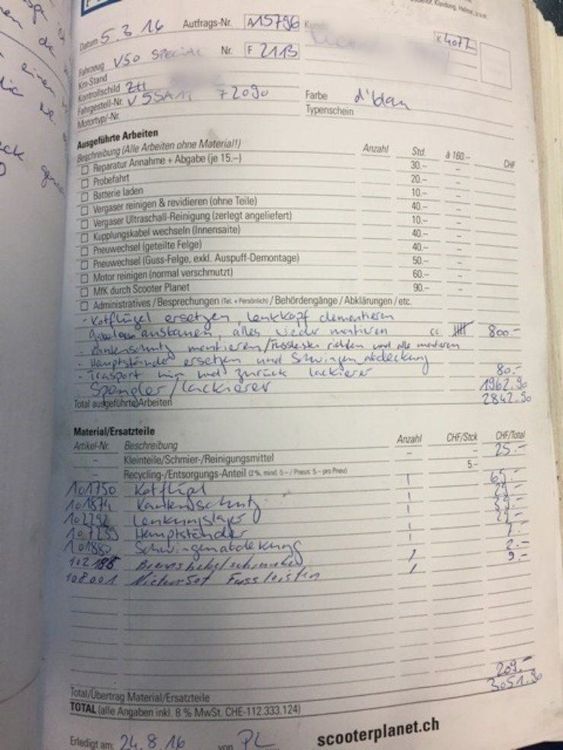 Datum 5.3.16 Auftrags-Nr. A15796
K4072
Fahrzeug V50 Special Nr. F 2113
Km-Stand
Kontrollschild ZH
Fahrgestell-Nr. V5SA1T 72090 Farbe d'blau
Motortyp/-Nr. Typenschein
Ausgeführte Arbeiten
Beschreibung (Alle Arbeiten ohne Material!) Anzahl Std. à 160.– CHF
Reparatur Annahme + Abgabe (je 15.–) 30.–
Probefahrt 20.–
Batterie laden 10.–
Vergaser reinigen & revidieren (ohne Teile) 40.–
Vergaser Ultraschall-Reinigung (zerlegt angeliefert) 10.–
Kupplungskabel wechseln (Innensaite) 40.–
Pneuwechsel (geteilte Felge) 40.–
Pneuwechsel (Guss-Felge, exkl. Auspuff-Demontage) 50.–
Motor reinigen (normal verschmutzt) 60.–
MfK durch Scooter Planet 90.–
Administratives / Besprechungen (Tel. + Persönlich) / Behördengänge / Abklärungen / etc.
- Kotflügel ersetzen, Lenkkopf demontieren
Gabel ausbauen, alles wieder montieren 800.–
- Kantenschutz montieren / Fussleisten richten und alle montieren
- Hauptständer ersetzen und Schwingenabdeckung
- Transport hin und zurück Lackierer 80.–
Spengler/Lackierer 1962.90
Total ausgeführte Arbeiten 2842.90
Material/Ersatzteile
Artikel-Nr. Beschreibung Anzahl CHF/Stck CHF/Total
– Kleinteile/Schmier-/Reinigungsmittel – – 25.–
– Recycling-/Entsorgungs-Anteil (2%, mind. 5.– / Pneus: 5.– pro Pneu) 5.–
101750 Kotflügel 1 65.–
101874 Kantenschutz 1
102292 Lenkungslager 1
107259 Hauptständer 1
101880 Schwingenabdekung 1
102186 Bremshebelschraube 1 2.–
108001 Nietenset Fussleisten 1 9.–
Total/Übertrag Material/Ersatzteile 209.–
TOTAL (alle Angaben inkl. 8 % MwSt. CHE-112.333.124) 3051.90
Erledigt am: 24.8.16 von PL scooterplanet.ch